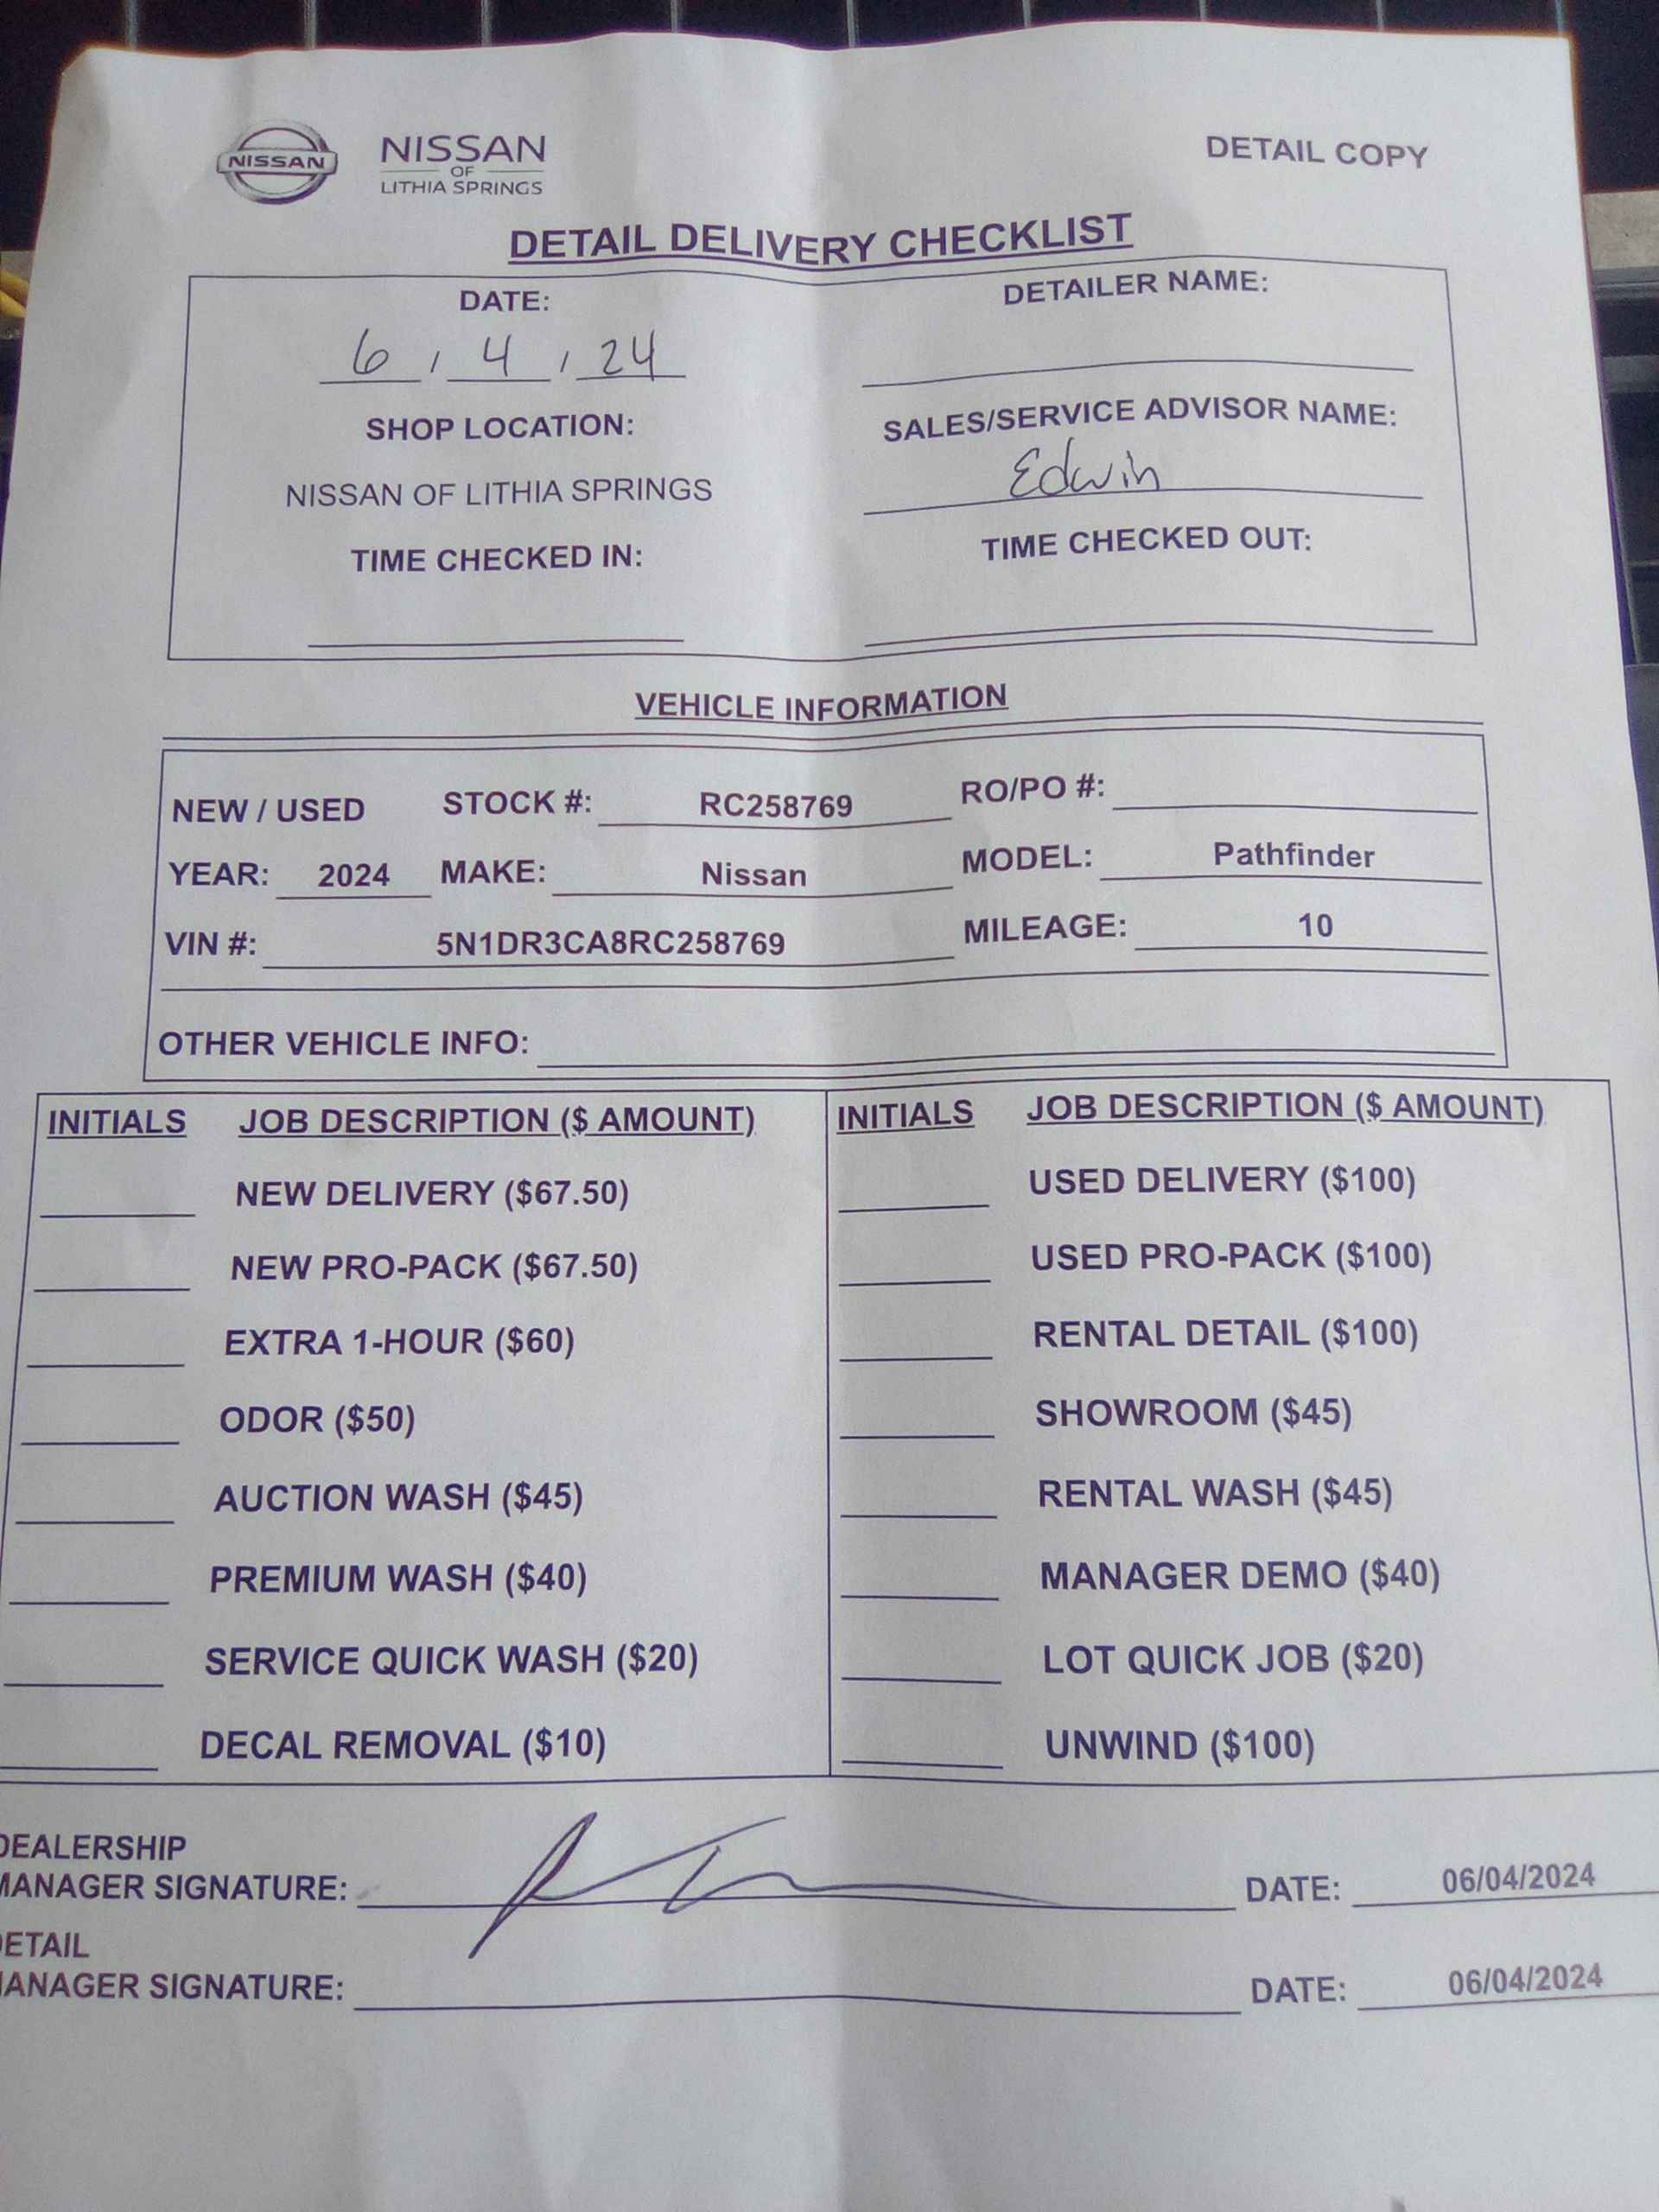 NISSAN
NISSAN
OF
LITHIA SPRINGS
DETAIL COPY
DETAIL DELIVERY CHECKLIST
DATE:
6 / 4 / 24
DETAILER NAME:
SHOP LOCATION:
NISSAN OF LITHIA SPRINGS
SALES/SERVICE ADVISOR NAME:
Edwin
TIME CHECKED IN:
TIME CHECKED OUT:
VEHICLE INFORMATION
NEW / USED STOCK #: RC258769 RO/PO #:
YEAR: 2024 MAKE: Nissan MODEL: Pathfinder
VIN #: 5N1DR3CA8RC258769 MILEAGE: 10
OTHER VEHICLE INFO:
INITIALS JOB DESCRIPTION ($ AMOUNT)
NEW DELIVERY ($67.50)
NEW PRO-PACK ($67.50)
EXTRA 1-HOUR ($60)
ODOR ($50)
AUCTION WASH ($45)
PREMIUM WASH ($40)
SERVICE QUICK WASH ($20)
DECAL REMOVAL ($10)
INITIALS JOB DESCRIPTION ($ AMOUNT)
USED DELIVERY ($100)
USED PRO-PACK ($100)
RENTAL DETAIL ($100)
SHOWROOM ($45)
RENTAL WASH ($45)
MANAGER DEMO ($40)
LOT QUICK JOB ($20)
UNWIND ($100)
DEALERSHIP
MANAGER SIGNATURE: DATE: 06/04/2024
DETAIL
MANAGER SIGNATURE: DATE: 06/04/2024